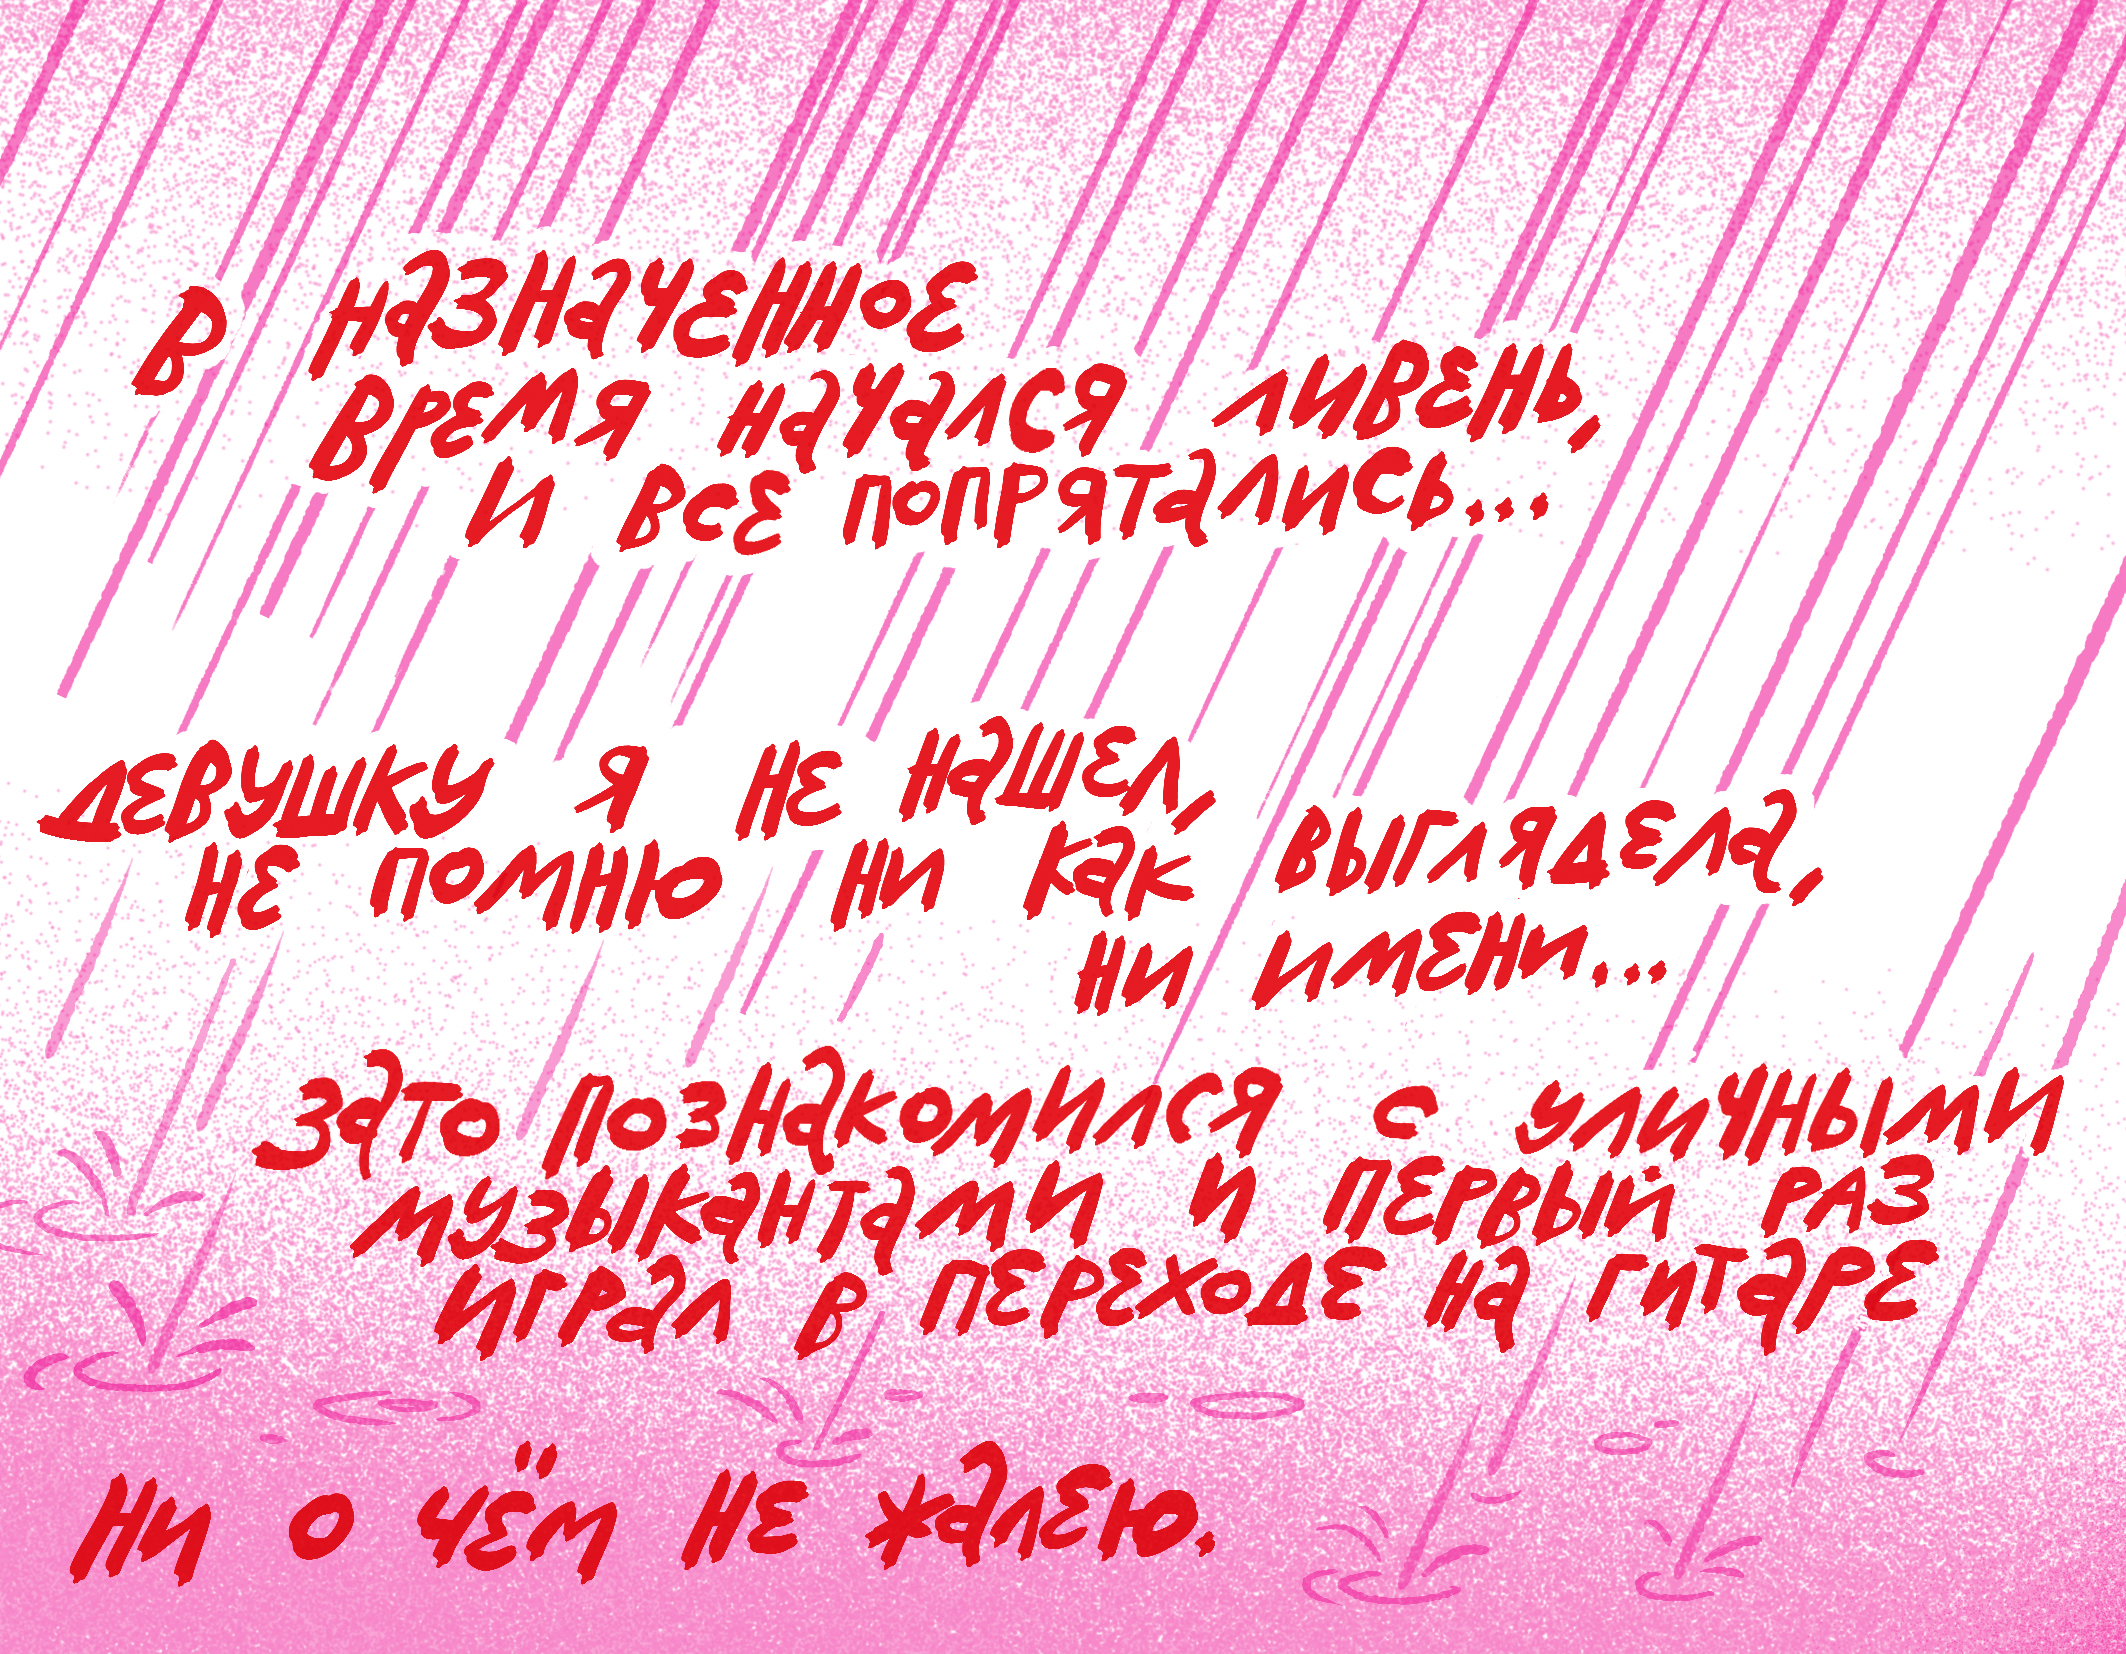 В назначенное
время начался ливень,
и все попрятались...
девушку я не нашел,
не помню ни как выглядела,
ни имени...
Зато познакомился с уличными
музыкантами и первый раз
играл в переходе на гитаре
Ни о чём не жалею.